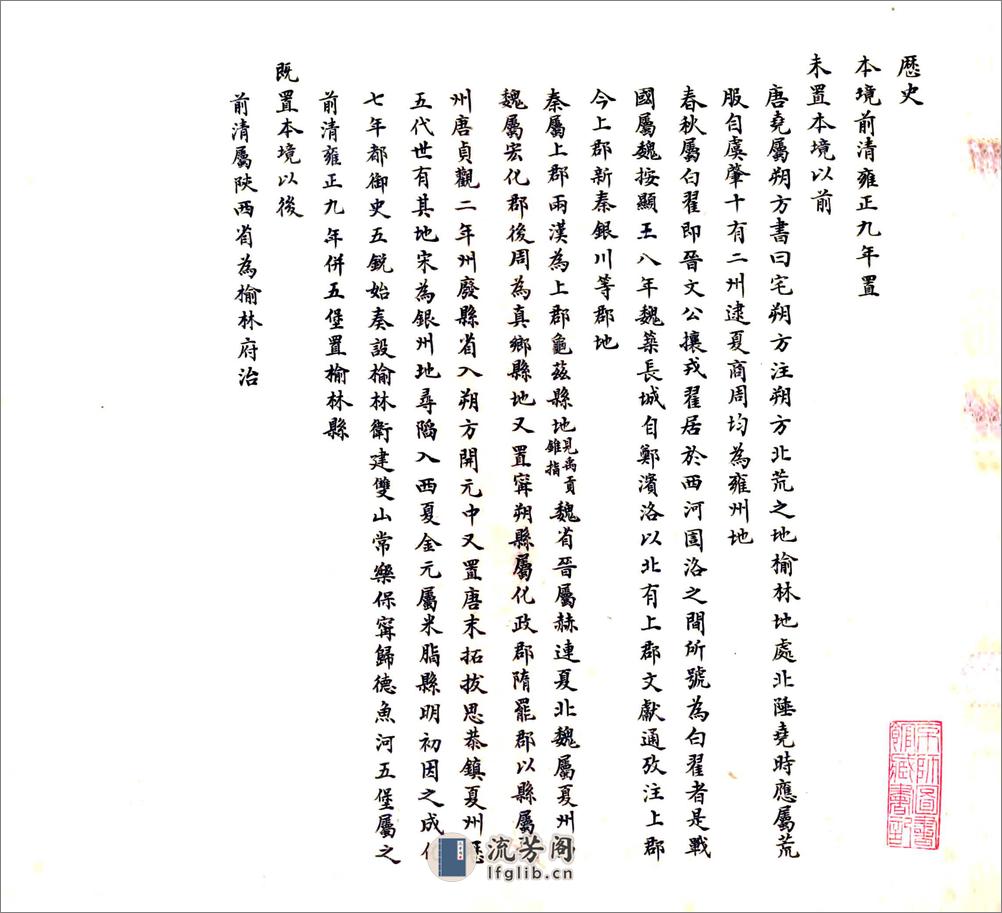 歷史
本境前清雍正九年置
未置本境以前
唐堯屬朔方書曰宅朔方注朔方北荒之地榆林地處北陲堯時應屬荒
服自虞肇十有二州逮夏商周均為雍州地
春秋屬白翟即晉文公攘戎翟居於西河圁洛之間所號為白翟者是戰
國屬魏按顯王八年魏築長城自鄭濱洛以北有上郡文獻通攷注上郡
今上郡新秦銀川等郡地
秦屬上郡兩漢為上郡龜茲縣地見禹貢錐指魏省晉屬赫連夏北魏屬夏州
魏屬宏化郡後周為真鄉縣地又置寧朔縣屬化政郡隋罷郡以縣屬
州唐貞觀二年州廢縣省入朔方開元中又置唐末拓拔思恭鎮夏州歷
五代世有其地宋為銀州地尋陷入西夏金元屬米脂縣明初因之成化
七年都御史五銳始奏設榆林衛建雙山常樂保寧歸德魚河五堡屬之
前清雍正九年併五堡置榆林縣
既置本境以後
前清屬陝西省為榆林府治
流芳阁
lfglib.cn